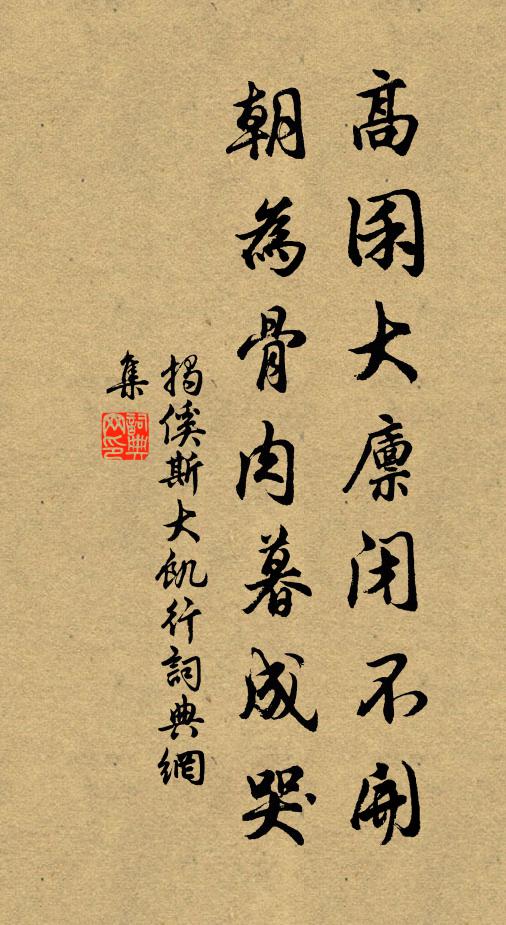 高囷大廩閉不開
朝為骨肉暮成哭
揭傒斯大飢行詞典網
集
詞典網印